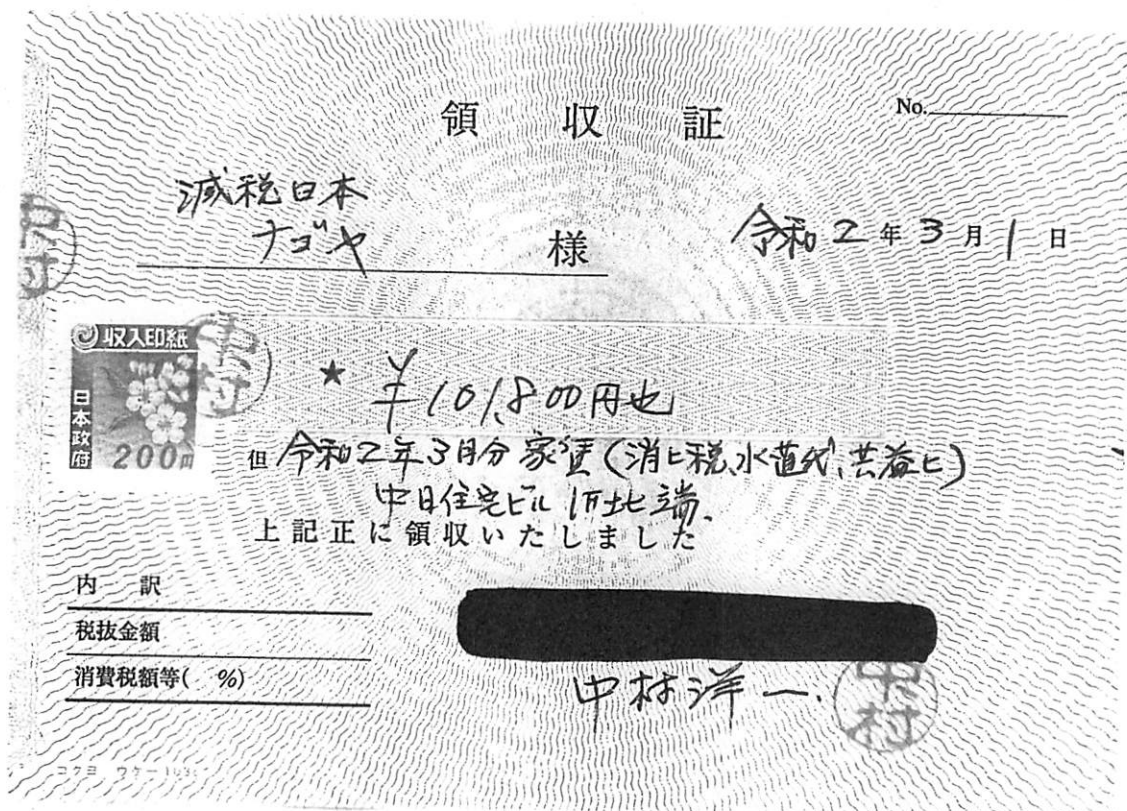 領収証
No.
減税日本
ナゴヤ
様
令和2年3月1日
中村
収入印紙
日本政府
200円
中村
★ ¥101,800円也
但 令和2年3月分 家賃(消ヒ税、水道代、共益ヒ)
中日住宅ビル 1F北端.
上記正に領収いたしました
内訳
税抜金額
消費税額等( %)
中村洋一.
中村
コクヨ ウケ-